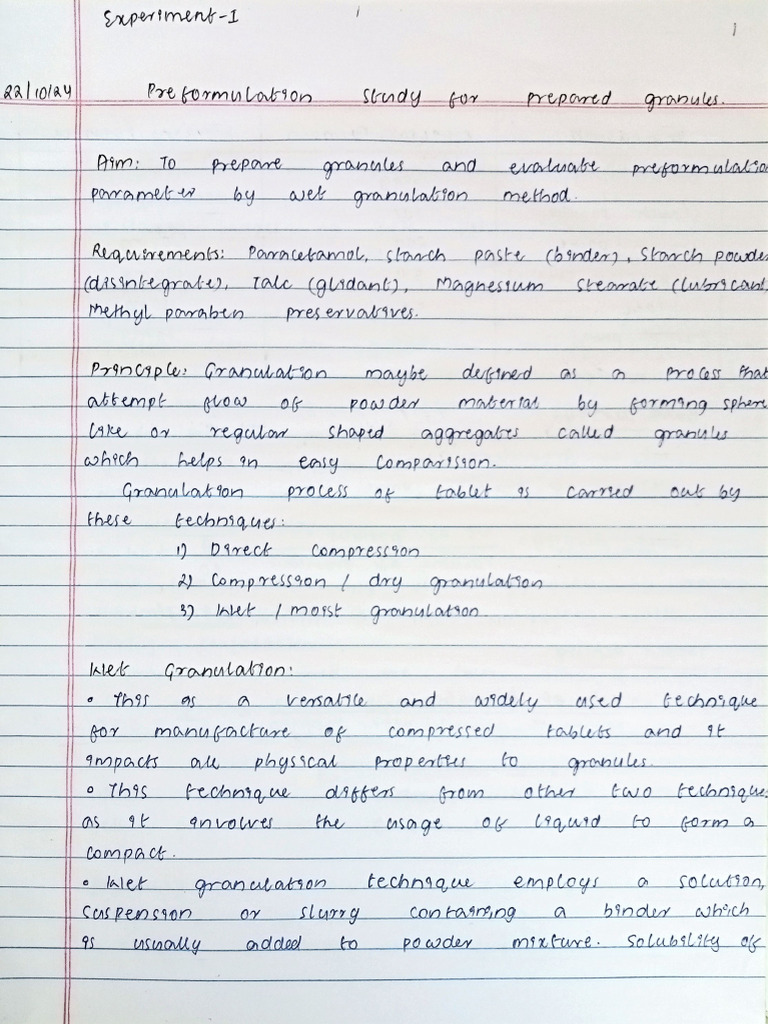 Experiment-I
1
22/10/24 Preformulation study for prepared granules.
Aim: To prepare granules and evaluate preformulation
parameter by wet granulation method.
Requirements: Paracetamol, starch paste (binder), Starch powder
(disintegrate), Talc (glidant), Magnesium Stearate (lubricant)
Methyl paraben preservatives.
Principle: Granulation maybe defined as a process that
attempt flow of powder material by forming sphere
like or regular shaped aggregates called granules
which helps in easy comparission.
Granulation process of tablet is carried out by
these techniques:
1) Direct compression
2) Compression / dry granulation
3) Wet / moist granulation
Wet Granulation:
• This is a versatile and widely used technique
for manufacture of compressed tablets and it
impacts all physical properties to granules.
• This technique differs from other two technique
as it involves the usage of liquid to form a
compact.
• Wet granulation technique employs a solution,
suspension or slurry containing a binder which
is usually added to powder mixture. Solubility of